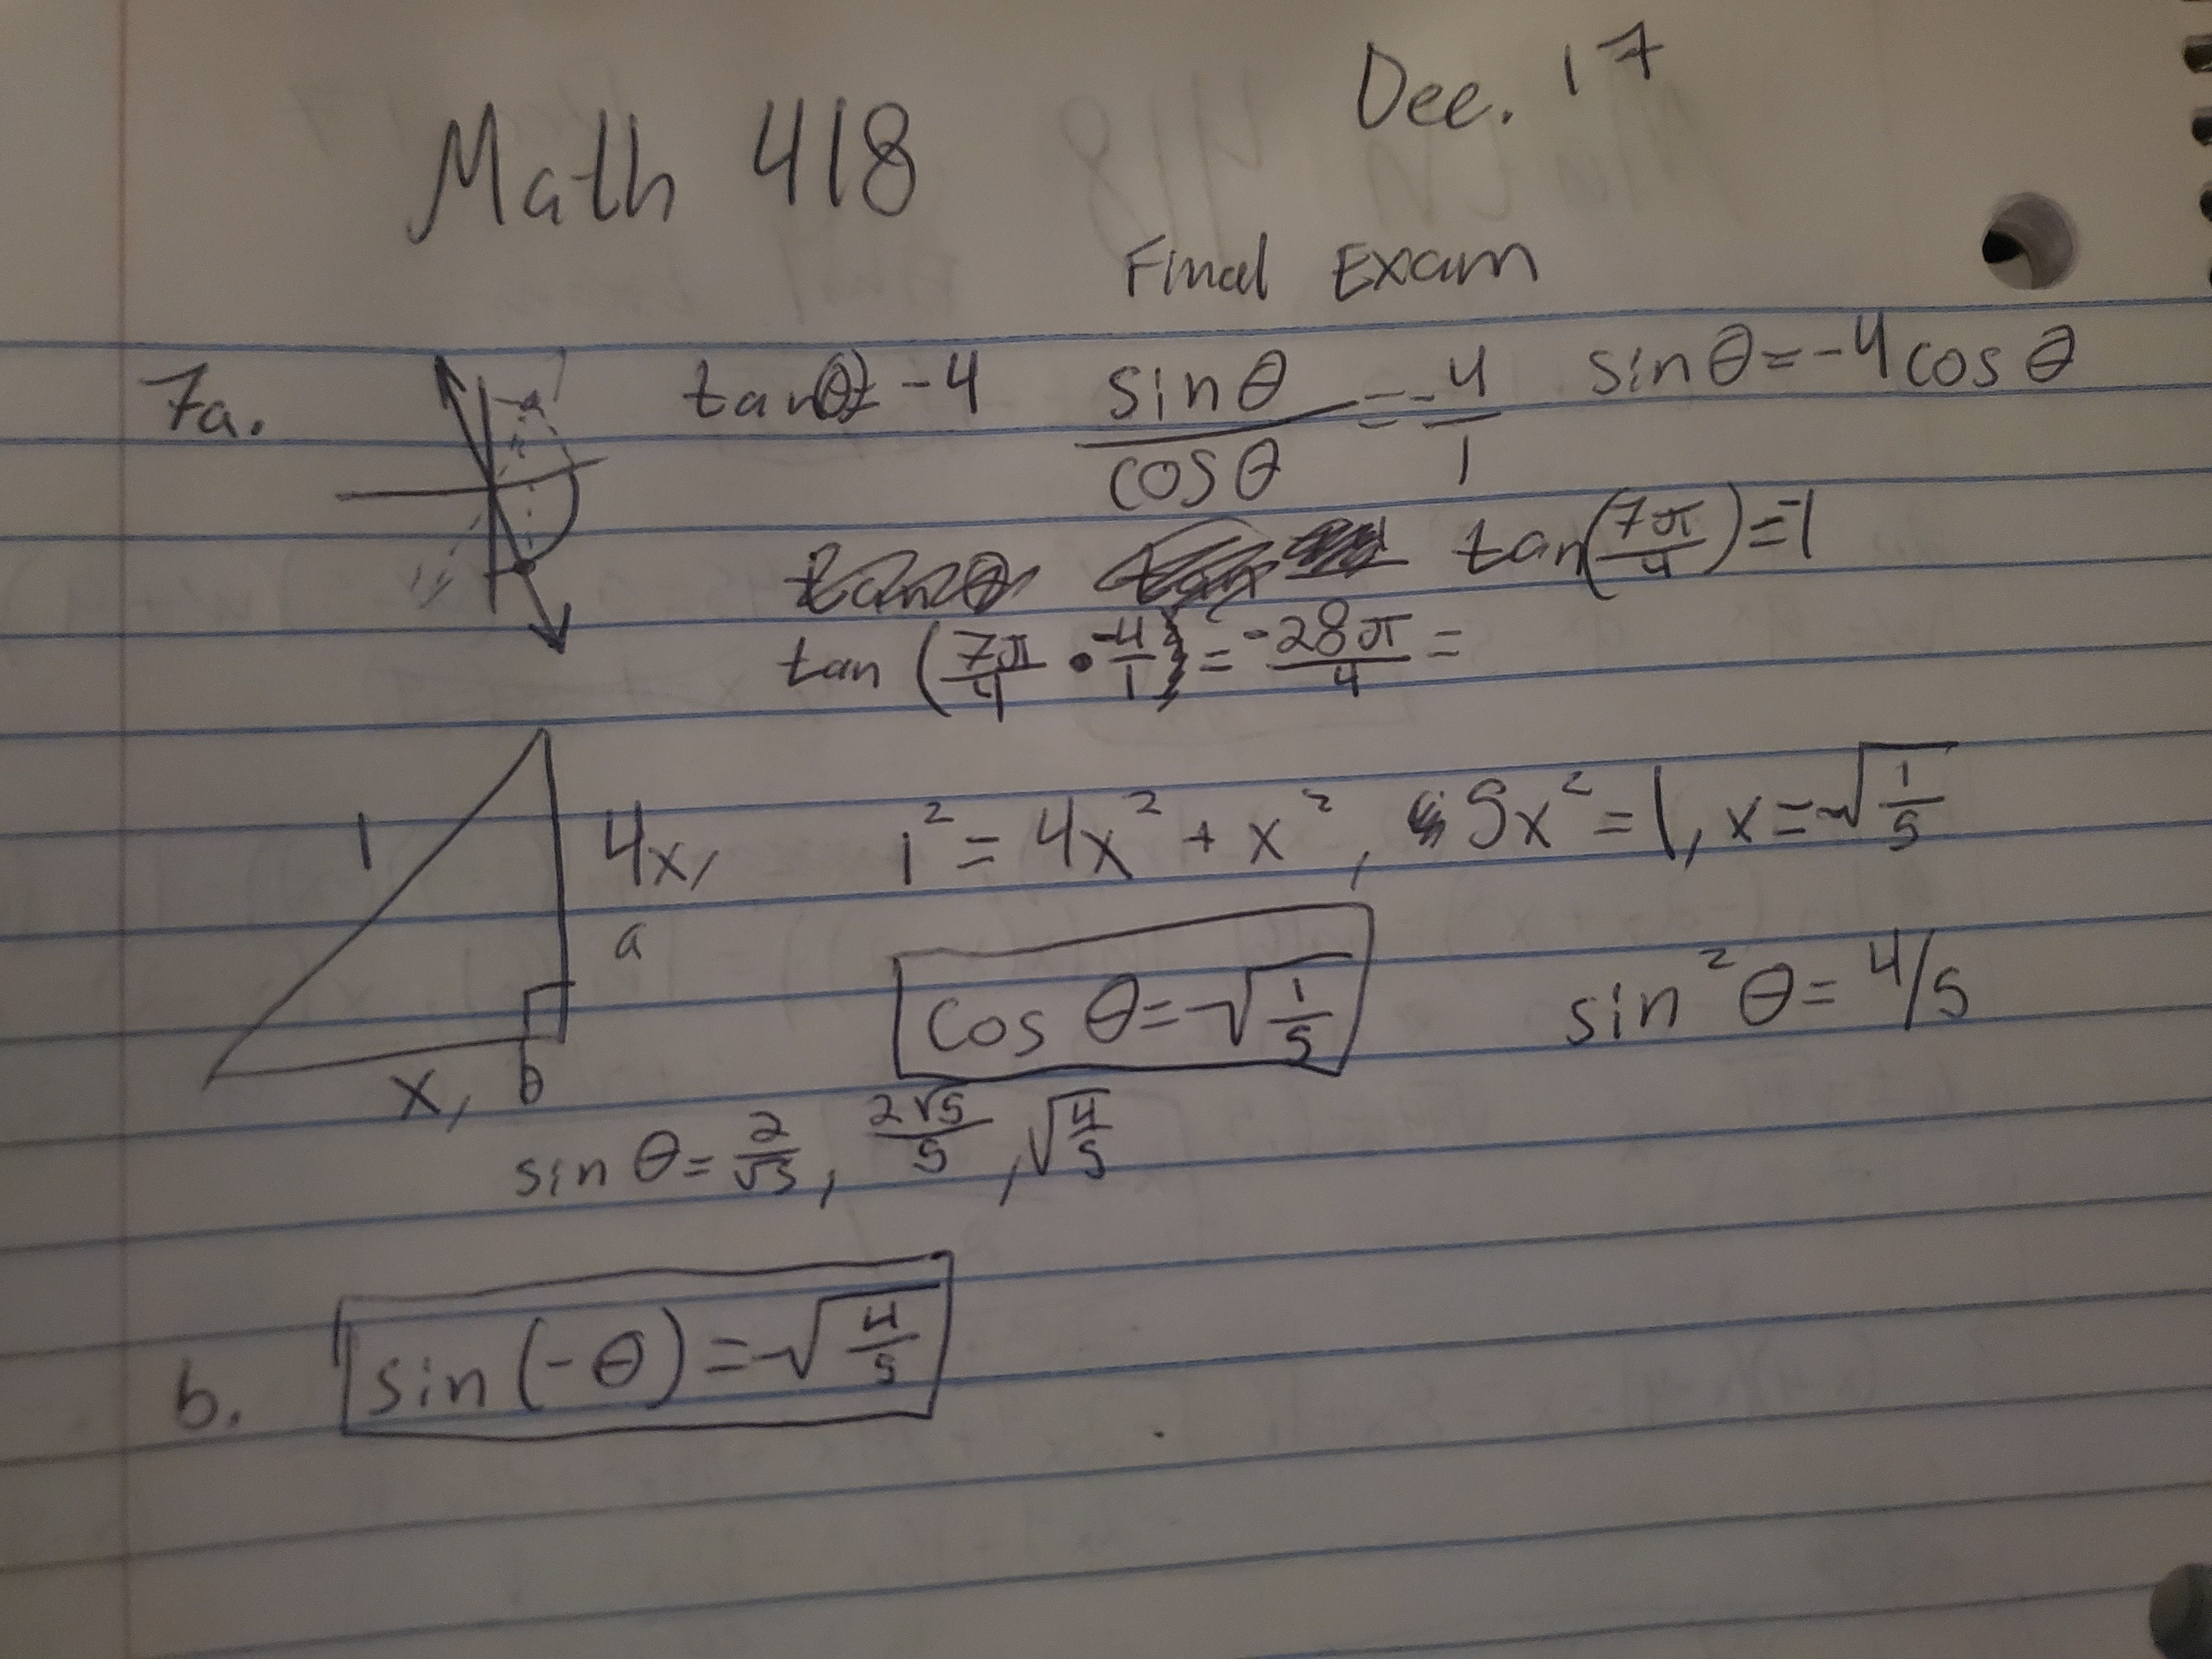 Math 418 Dec. 17
Final Exam
7a. tanθ = -4 sinθ/cosθ = -4/1 sinθ = -4cosθ
tan(7π/4) = -1
tan(7π/4 • -4/1) = -28π/4 =
1 4x, 1² = 4x² + x², 5x² = 1, x = √(1/5)
a
cos θ = √(1/5) sin²θ = 4/5
x, b
sin θ = 2/√5, 2√5/5, √(4/5)
b. sin(-θ) = -√(4/5)